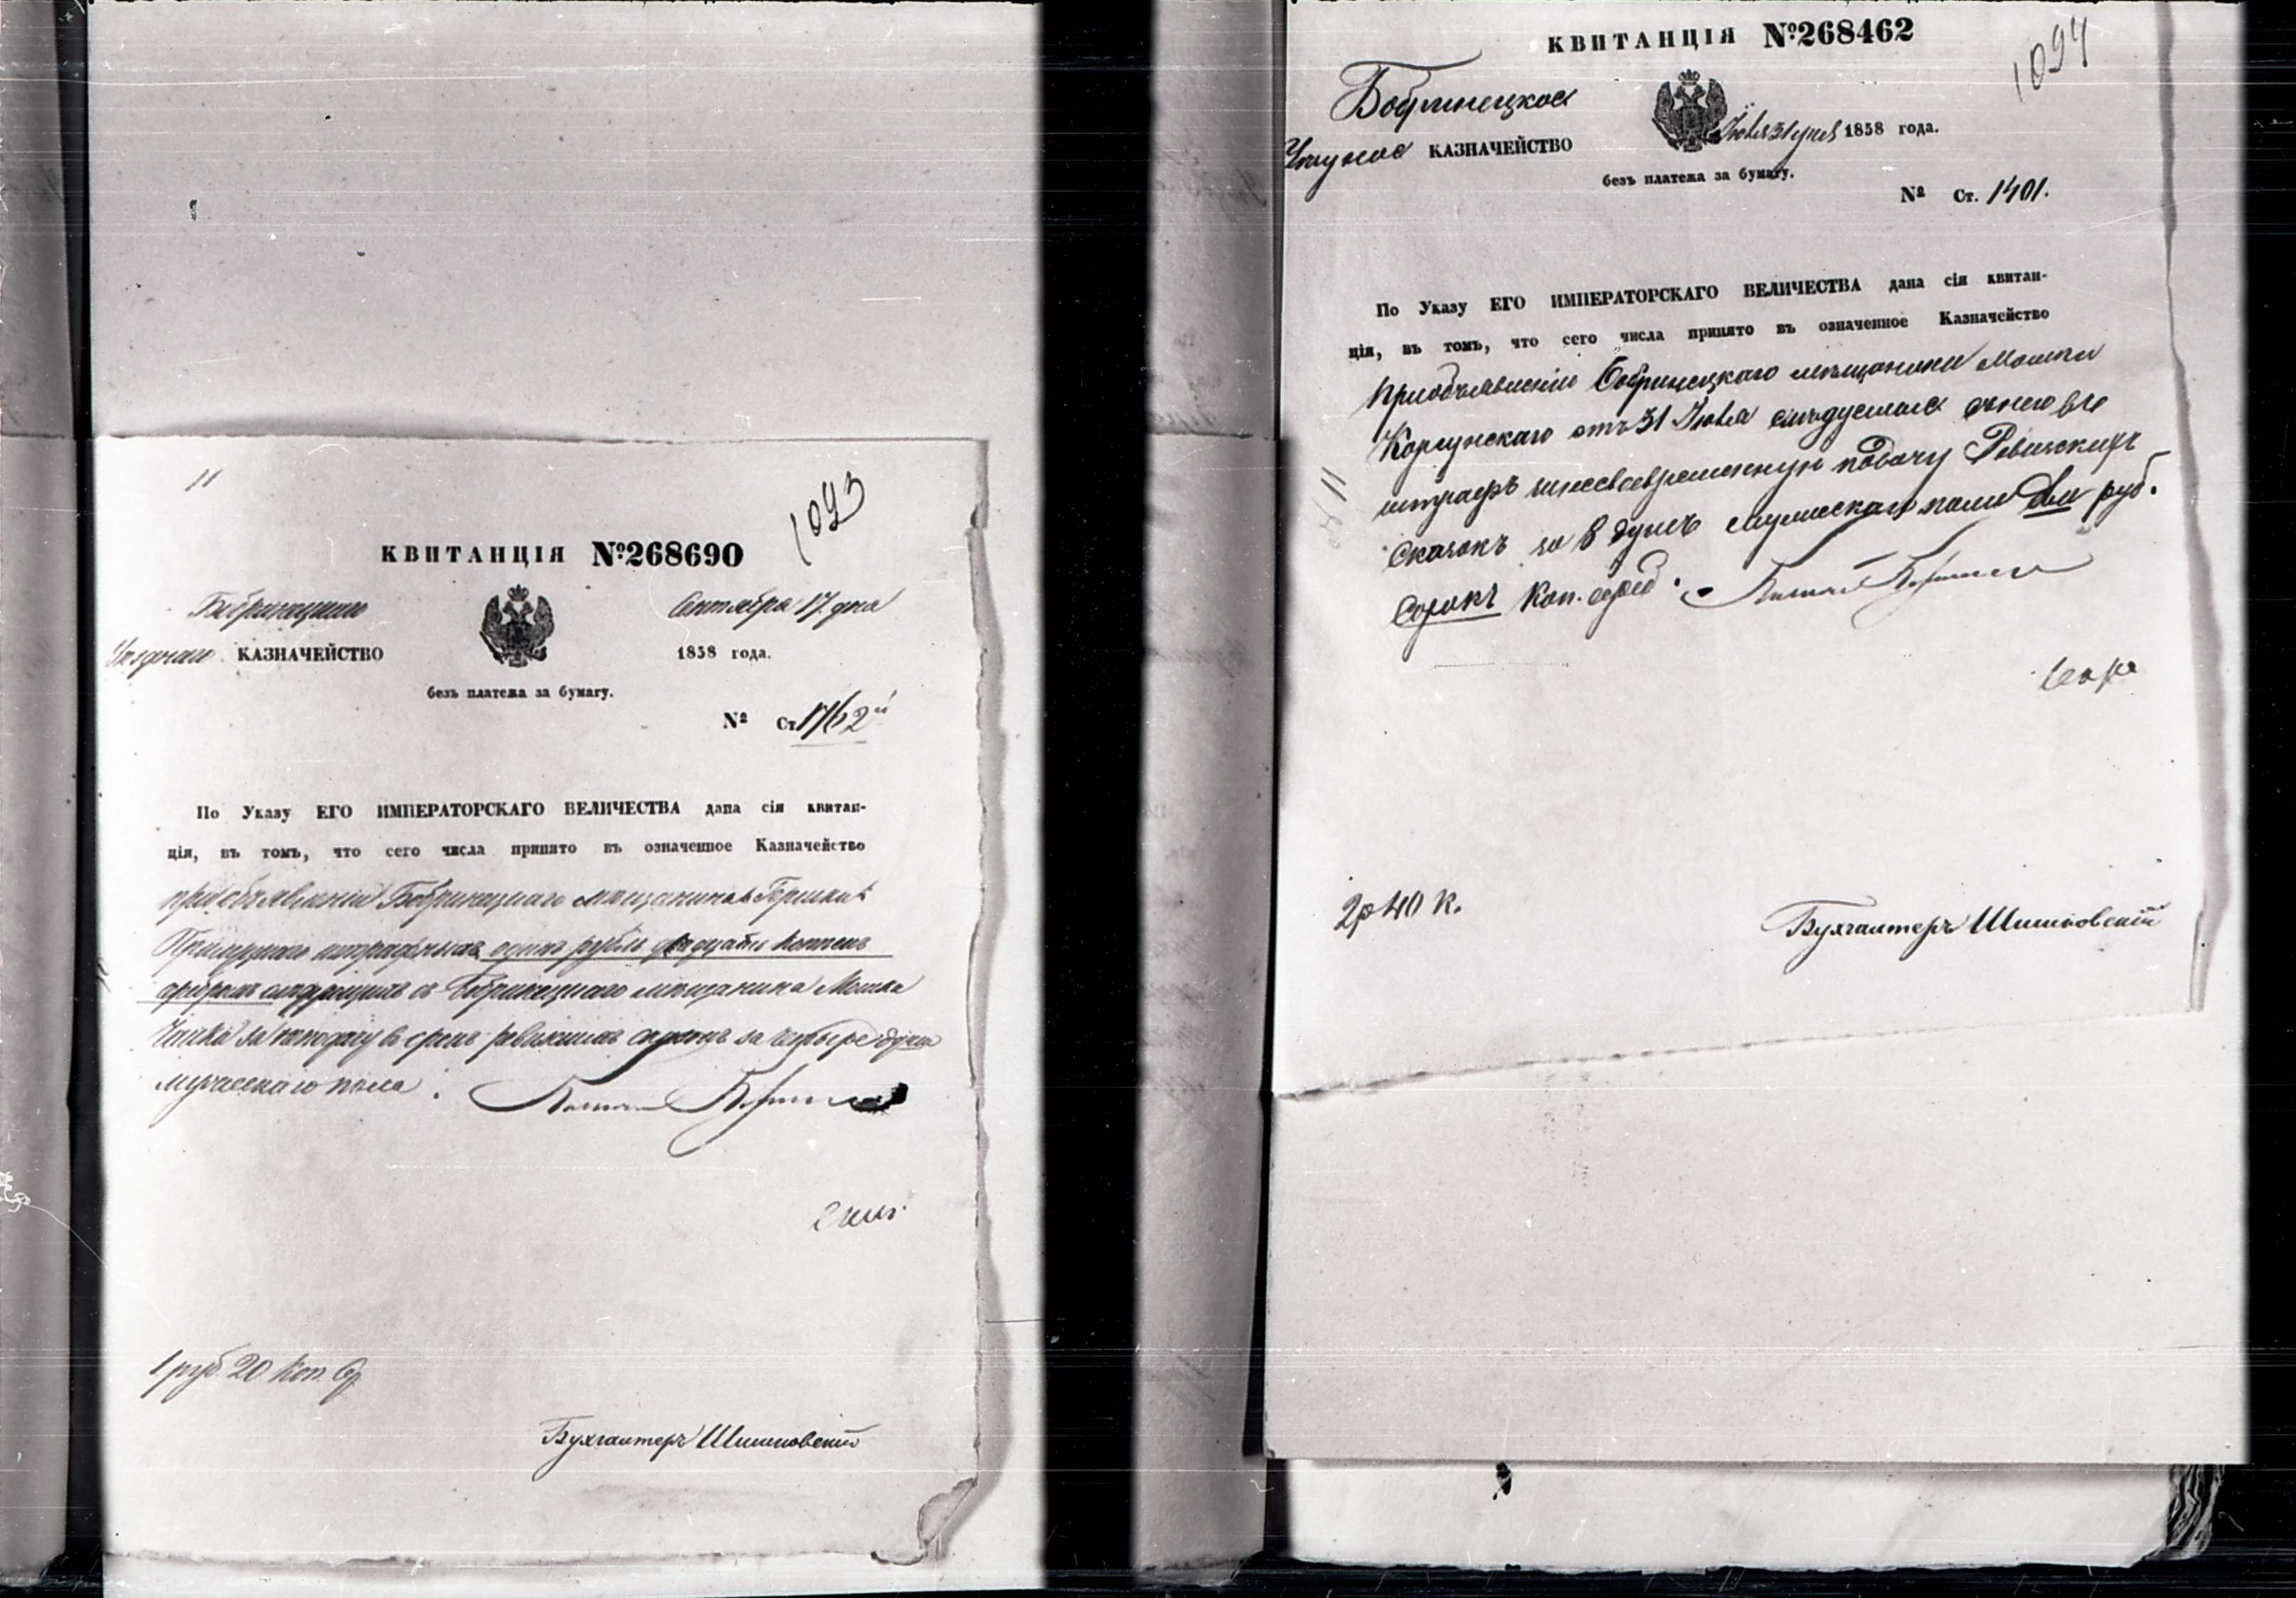 11
1093
КВИТАНЦІЯ №268690
Бобринецкаго
Сентября 17 дня
Уѣзднаго КАЗНАЧЕЙСТВО
1858 года.
безъ платежа за бумагу.
№ Ст. 1762й
По Указу ЕГО ИМПЕРАТОРСКАГО ВЕЛИЧЕСТВА дана сія квитан-
ція, въ томъ, что сего числа принято въ означенное Казначейство
при объявленіи Бобринецкаго мѣщанина Гершка
штрафныхъ одинъ рубль двадцать копѣекъ
серебромъ слѣдующихъ съ Бобринецкаго мѣщанина Мошка
за неподачу в срокъ ревизскихъ сказокъ за четыре души
мужескаго пола.
1 руб. 20 коп. Ср
Бухгалтеръ Шишковскій
1094
КВИТАНЦІЯ №268462
Бобринецкое
Іюля 31 дня 1858 года.
Уѣздное КАЗНАЧЕЙСТВО
безъ платежа за бумагу.
№ Ст. 1401.
По Указу ЕГО ИМПЕРАТОРСКАГО ВЕЛИЧЕСТВА дана сія квитан-
ція, въ томъ, что сего числа принято въ означенное Казначейство
При объявленіи Бобринецкаго мѣщанина Мошки
Корсунскаго отъ 31 Іюля слѣдуемые снего въ
штрафъ занесвоевременную подачу Ревизскихъ
Сказокъ за 8 душъ мужескаго пола два руб.
Сорокъ коп. сереб.
11
2р 40 к.
Бухгалтеръ Шишковскій